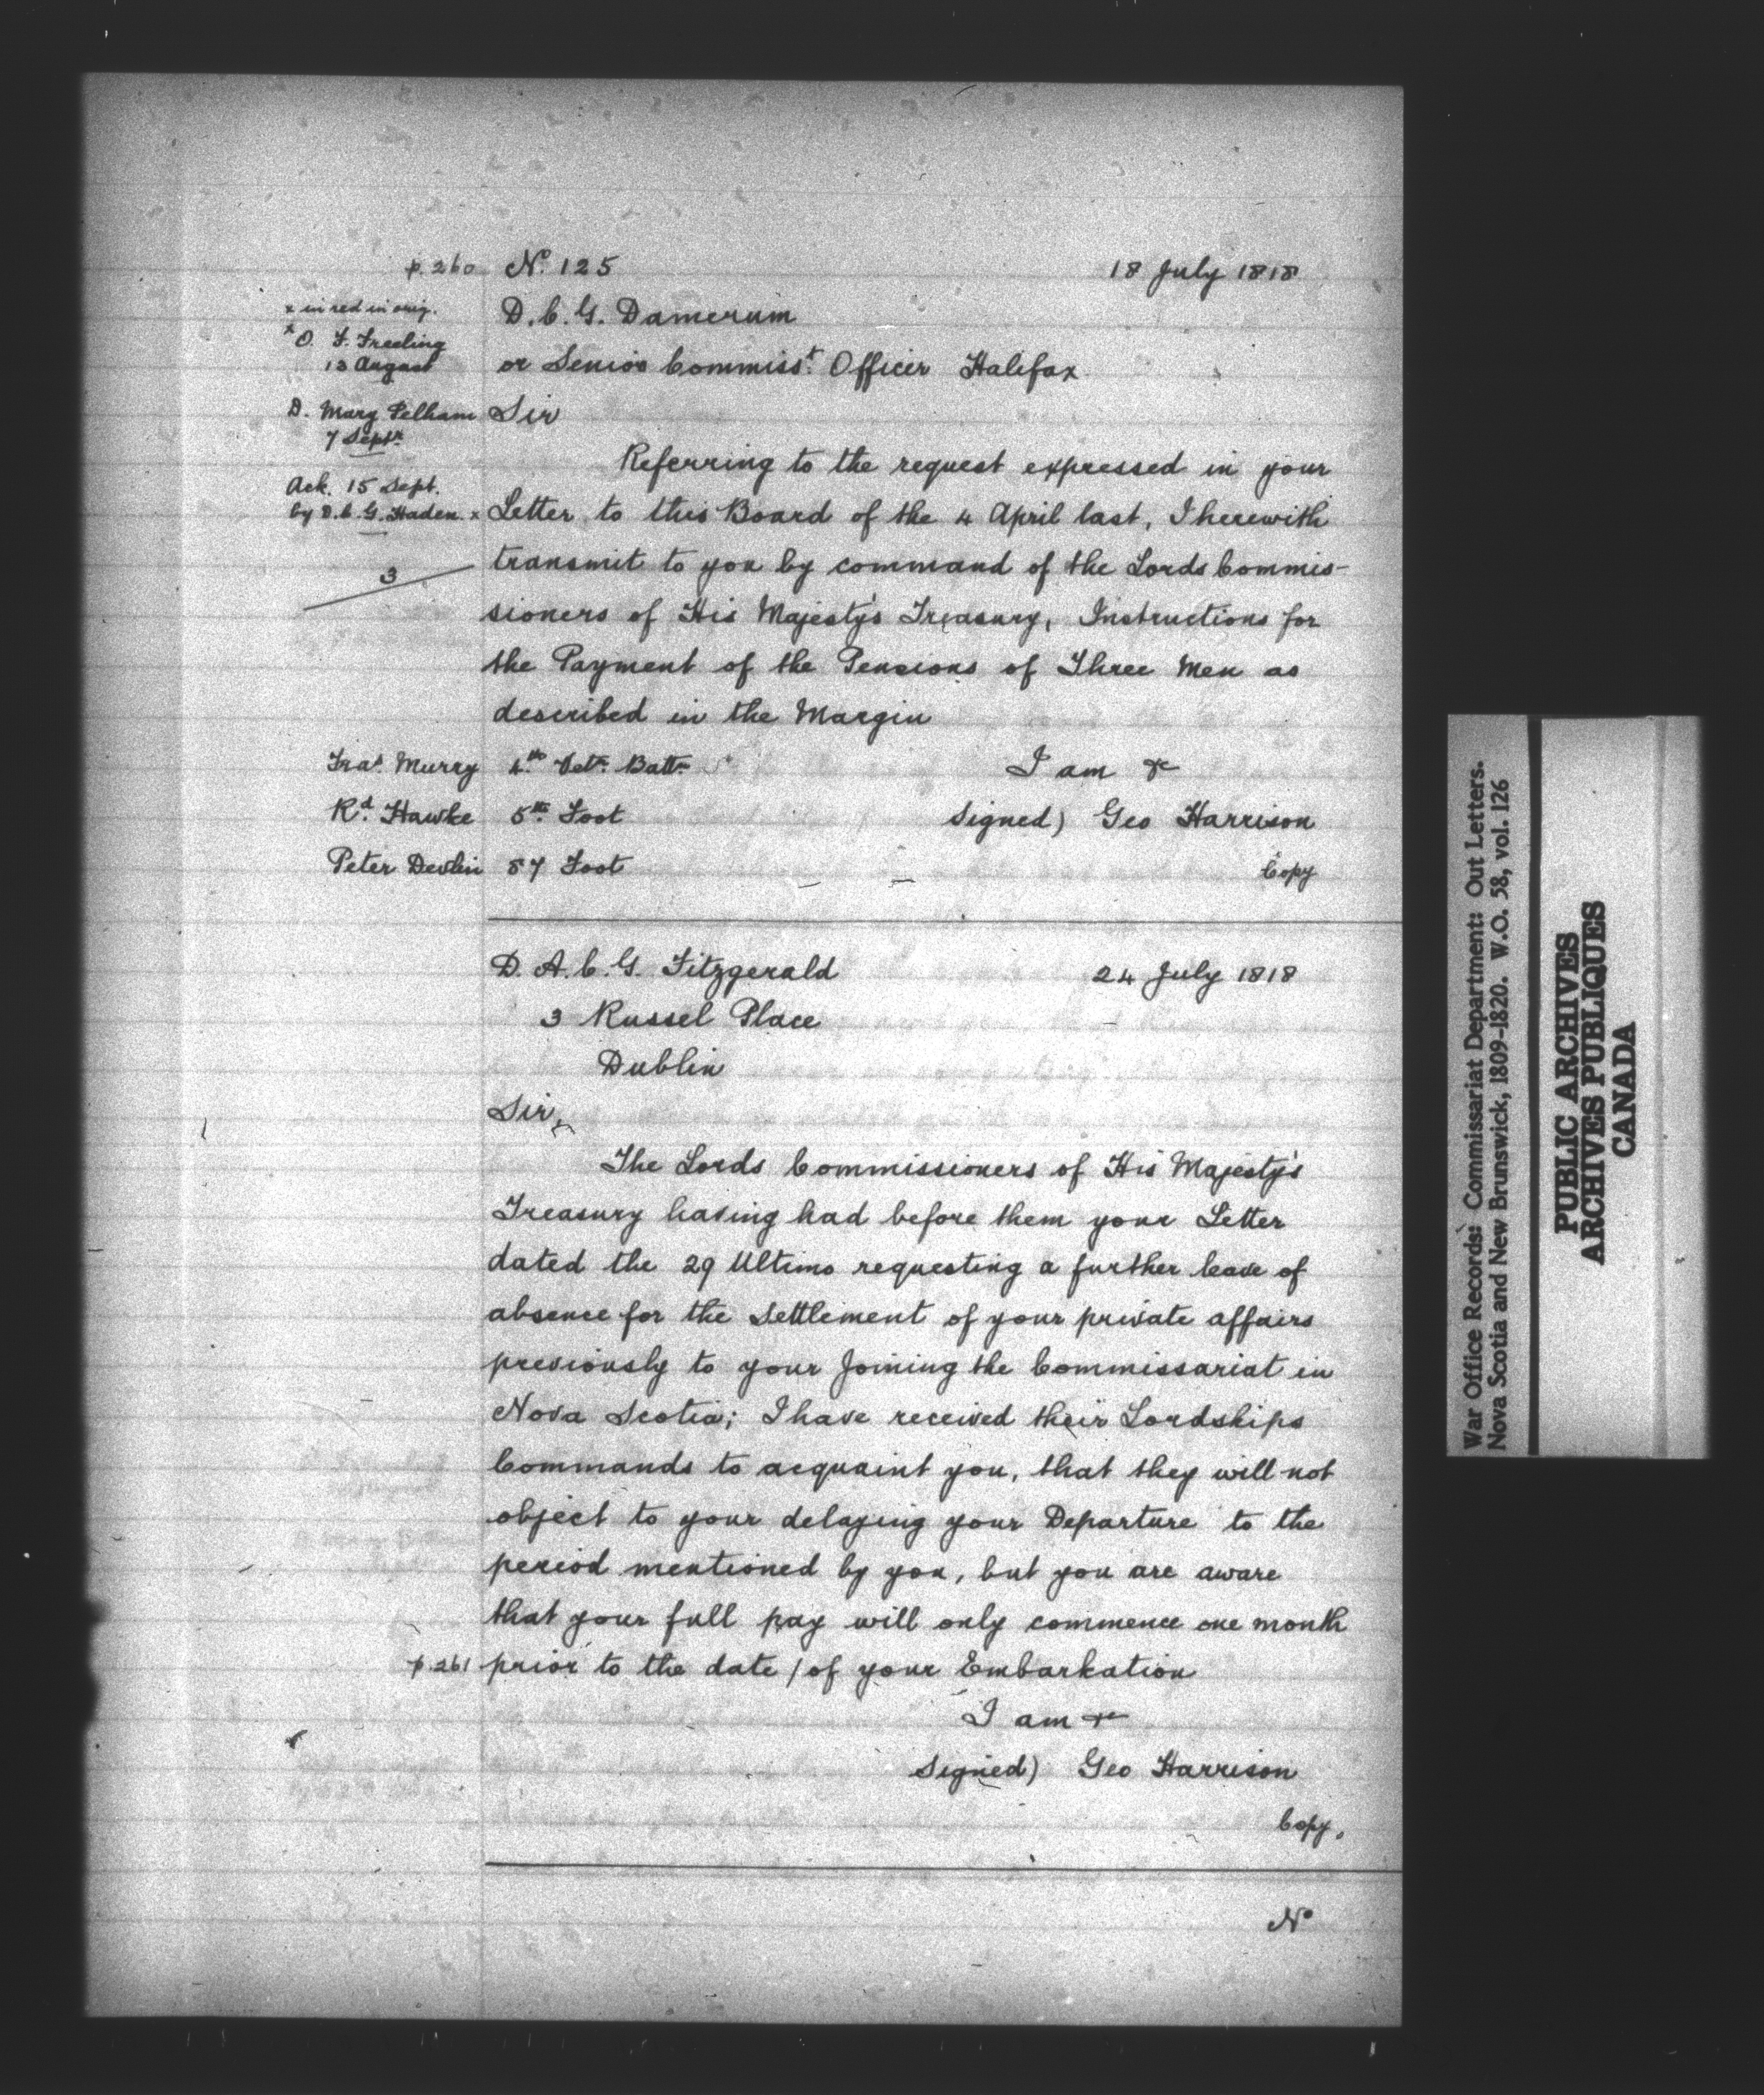 p. 260 No. 125 18 July 1818
x in red in orig.
D. C. G. Damerum
x O. F. Freeling
13 August
or Senior Commisst. Officer Halifax
D. Mary Pelham
7 Septr.
Sir
Referring to the request expressed in your
Ack. 15 Sept.
by D. C. G. Haden. x
Letter to this Board of the 4 April last, I herewith
transmit to you by command of the Lords Commis-
3
sioners of His Majesty's Treasury, Instructions for
the Payment of the Pensions of Three Men as
described in the Margin
Fras. Murry 4th Vetn. Battn. I am &c
Rd. Hawke 5th. Foot Signed) Geo Harrison
Peter Devlin 57 Foot Copy
D. A. C. G. Fitzgerald 24 July 1818
3 Russel Place
Dublin
Sir,
The Lords Commissioners of His Majesty's
Treasury having had before them your Letter
dated the 29 Ultimo requesting a further leave of
absence for the Settlement of your private affairs
previously to your Joining the Commissariat in
Nova Scotia; I have received their Lordships
Commands to acquaint you, that they will not
object to your delaying your Departure to the
period mentioned by you, but you are aware
that your full pay will only commence one month
p. 261 prior to the date / of your Embarkation
I am &c
Signed) Geo Harrison
Copy.
No
War Office Records: Commissariat Department: Out Letters.
Nova Scotia and New Brunswick, 1809-1820. W.O. 58, vol. 126
PUBLIC ARCHIVES
ARCHIVES PUBLIQUES
CANADA